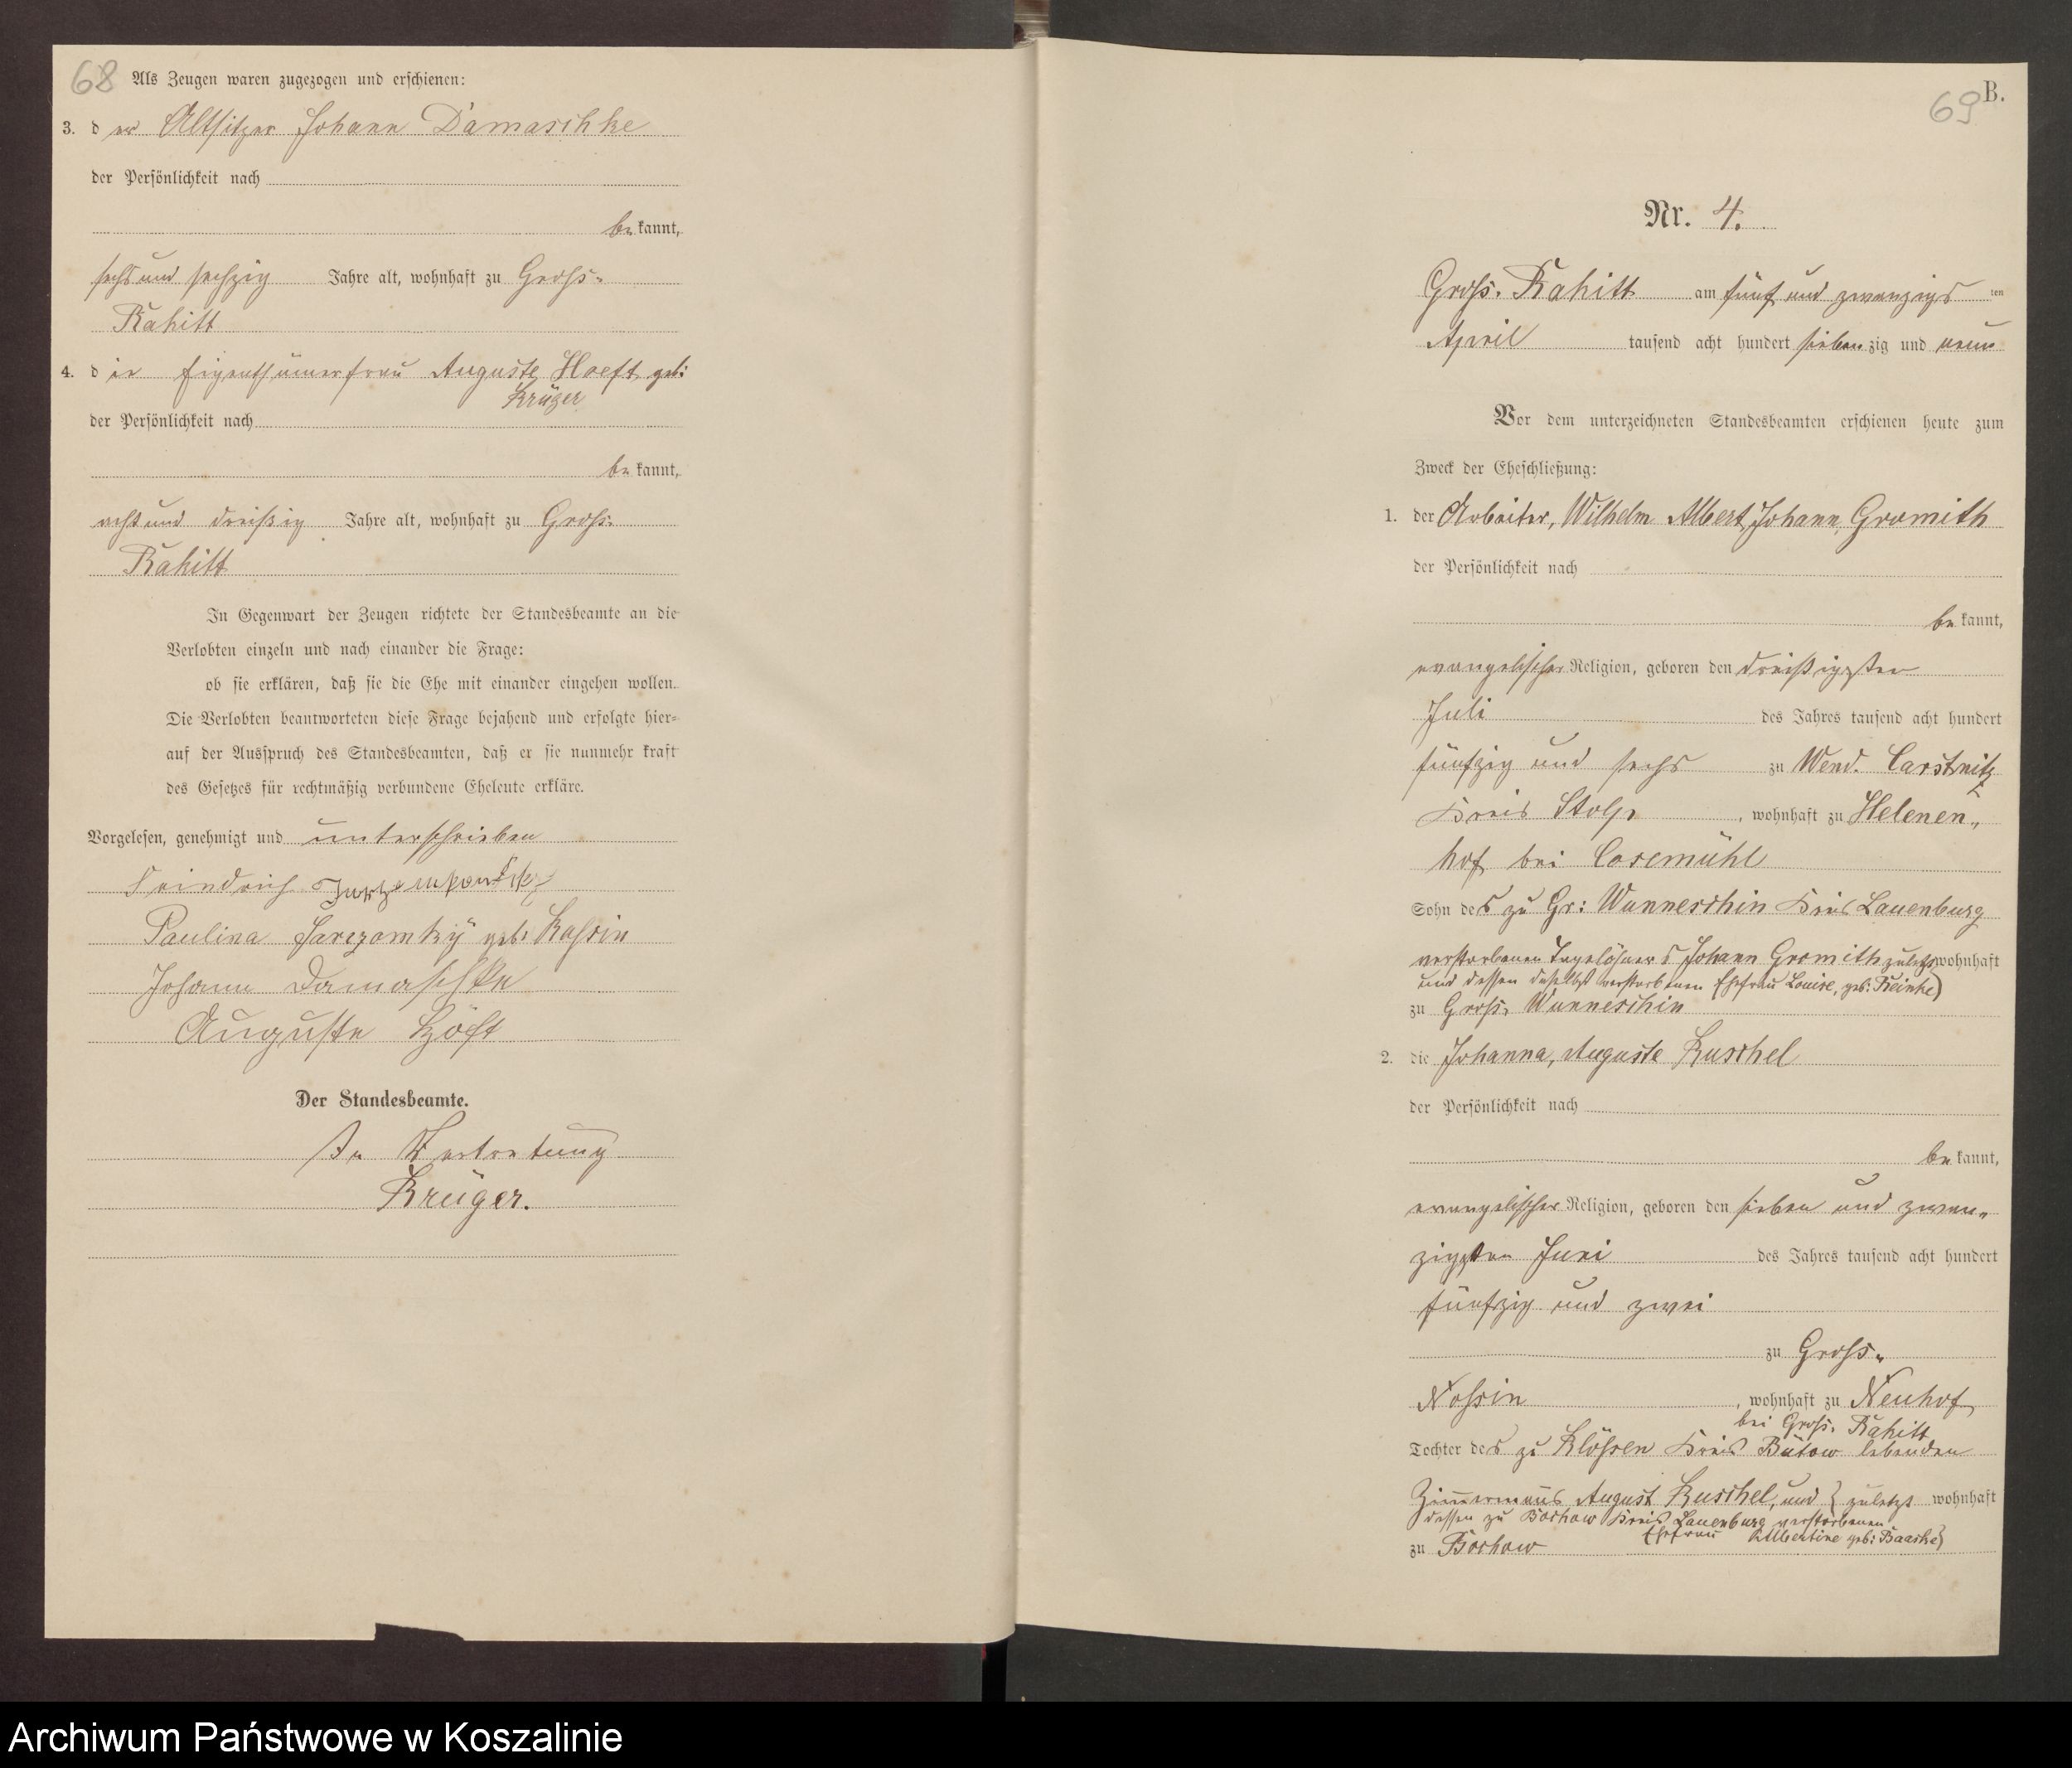 68
Als Zeugen waren zugezogen und erschienen:
3. d er Altsitzer Johann Damaschke
der Persönlichkeit nach
be kannt,
sechs und sechzig Jahre alt, wohnhaft zu Gross-
Rakitt
4. d ie Eigenthümerfrau Auguste Hoeft geb:
Krüger
der Persönlichkeit nach
be kannt,
acht und dreißig Jahre alt, wohnhaft zu Gross-
Rakitt
In Gegenwart der Zeugen richtete der Standesbeamte an die
Verlobten einzeln und nach einander die Frage:
ob sie erklären, daß sie die Ehe mit einander eingehen wollen.
Die Verlobten beantworteten diese Frage bejahend und erfolgte hier-
auf der Ausspruch des Standesbeamten, daß er sie nunmehr kraft
des Gesetzes für rechtmäßig verbundene Eheleute erkläre.
Vorgelesen, genehmigt und unterschrieben
Paulina geb.
Johann Damaschke
Auguste Höft
Der Standesbeamte.
In Vertretung
Krüger.
B.
69
Nr. 4.
Gross-Rakitt am fünf und zwanzigs ten
April tausend acht hundert sieben zig und neun
Vor dem unterzeichneten Standesbeamten erschienen heute zum
Zweck der Eheschließung:
1. der Arbeiter, Wilhelm Albert, Johann, Gromith
der Persönlichkeit nach
be kannt,
evangelischer Religion, geboren den dreißigsten
Juli des Jahres tausend acht hundert
fünfzig und sechs zu Wend. Carstnitz
Kreis Stolp , wohnhaft zu Helenen-
hof bei Cosemühl
Sohn des zu Gr: Wunneschin Kreis Lauenburg
verstorbenen Tagelöhners Johann Gromith zuletzt wohnhaft
und dessen daselbst verstorbenen Ehefrau Louise, geb: Reinke)
zu Gross-Wunneschin
2. die Johanna, Auguste Kuschel
der Persönlichkeit nach
be kannt,
evangelischer Religion, geboren den sieben und zwan-
zigsten Juni des Jahres tausend acht hundert
fünfzig und zwei
zu Gross-
Nossin , wohnhaft zu Neuhof
bei Gross-Rakitt
Tochter des zu Klössen Kreis Bütow lebenden
Zimmermanns August Kuschel, und } zuletzt wohnhaft
dessen zu Bochow Kreis Lauenburg verstorbenen
Ehefrau Albertine geb: Baaske}
zu Bochow
Archiwum Państwowe w Koszalinie